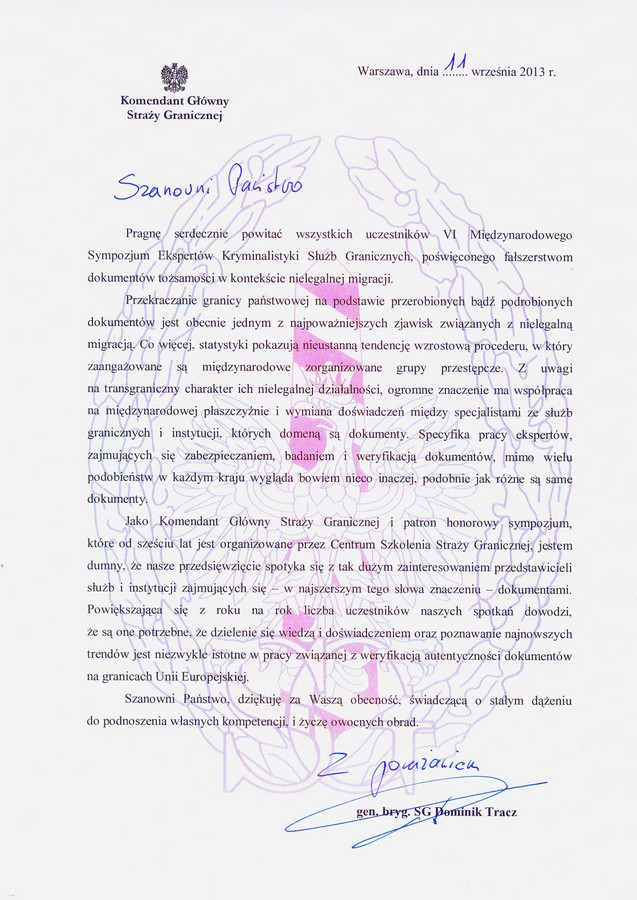 Warszawa, dnia 11 września 2013 r.
Komendant Główny
Straży Granicznej
Szanowni Państwo
Pragnę serdecznie powitać wszystkich uczestników VI Międzynarodowego
Sympozjum Ekspertów Kryminalistyki Służb Granicznych, poświęconego fałszerstwom
dokumentów tożsamości w kontekście nielegalnej migracji.
Przekraczanie granicy państwowej na podstawie przerobionych bądź podrobionych
dokumentów jest obecnie jednym z najpoważniejszych zjawisk związanych z nielegalną
migracją. Co więcej, statystyki pokazują nieustanną tendencję wzrostową procederu, w który
zaangażowane są międzynarodowe zorganizowane grupy przestępcze. Z uwagi
na transgraniczny charakter ich nielegalnej działalności, ogromne znaczenie ma współpraca
na międzynarodowej płaszczyźnie i wymiana doświadczeń między specjalistami ze służb
granicznych i instytucji, których domeną są dokumenty. Specyfika pracy ekspertów,
zajmujących się zabezpieczaniem, badaniem i weryfikacją dokumentów, mimo wielu
podobieństw w każdym kraju wygląda bowiem nieco inaczej, podobnie jak różne są same
dokumenty.
Jako Komendant Główny Straży Granicznej i patron honorowy sympozjum,
które od sześciu lat jest organizowane przez Centrum Szkolenia Straży Granicznej, jestem
dumny, że nasze przedsięwzięcie spotyka się z tak dużym zainteresowaniem przedstawicieli
służb i instytucji zajmujących się – w najszerszym tego słowa znaczeniu – dokumentami.
Powiększająca się z roku na rok liczba uczestników naszych spotkań dowodzi,
że są one potrzebne, że dzielenie się wiedzą i doświadczeniem oraz poznawanie najnowszych
trendów jest niezwykle istotne w pracy związanej z weryfikacją autentyczności dokumentów
na granicach Unii Europejskiej.
Szanowni Państwo, dziękuję za Waszą obecność, świadczącą o stałym dążeniu
do podnoszenia własnych kompetencji, i życzę owocnych obrad.
Z poważaniem
gen. bryg. SG Dominik Tracz